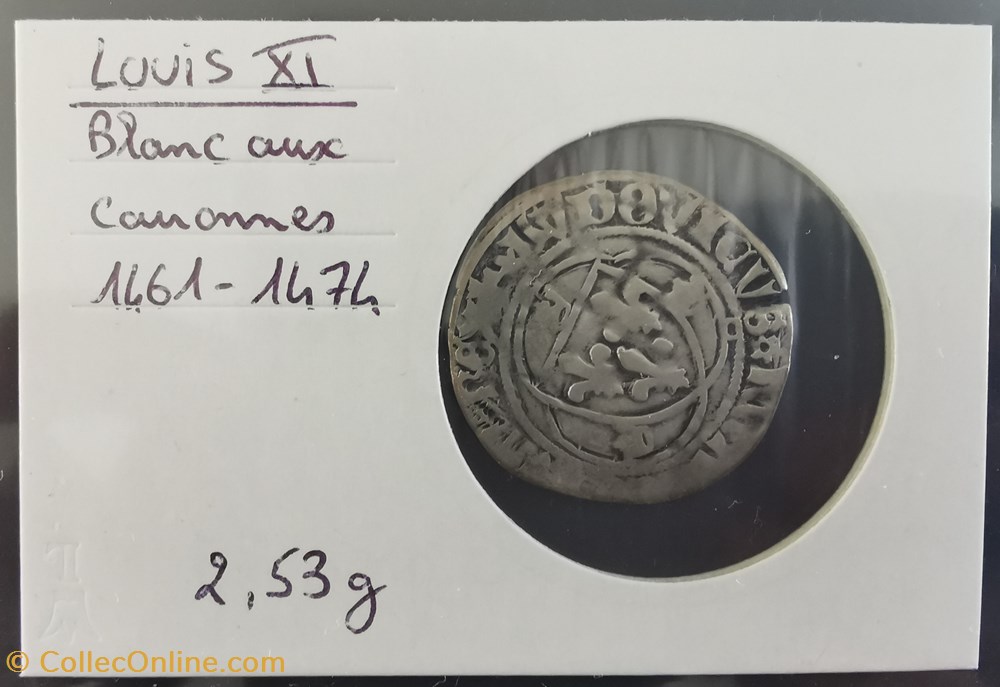 Louis XI
Blanc aux
couronnes
1461-1474
LVDOVICVS
2,53 g
© CollecOnline.com